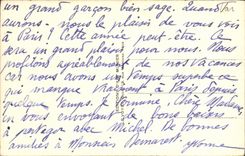 un grand garçon bien sage. Quand
aurons-nous le plaisir de vous voir
à Paris ? Cette année peut-être. Ce
sera un grand plaisir pour nous. Nous
profitons agréablement de nos vacances
car nous avons un temps superbe ce
qui manque vraiment à Paris depuis
quelque temps. Je termine, Chère Madame
en vous envoyant de bons baisers
à partager avec Michel. De bonnes
amitiés à Monsieur Yvonne